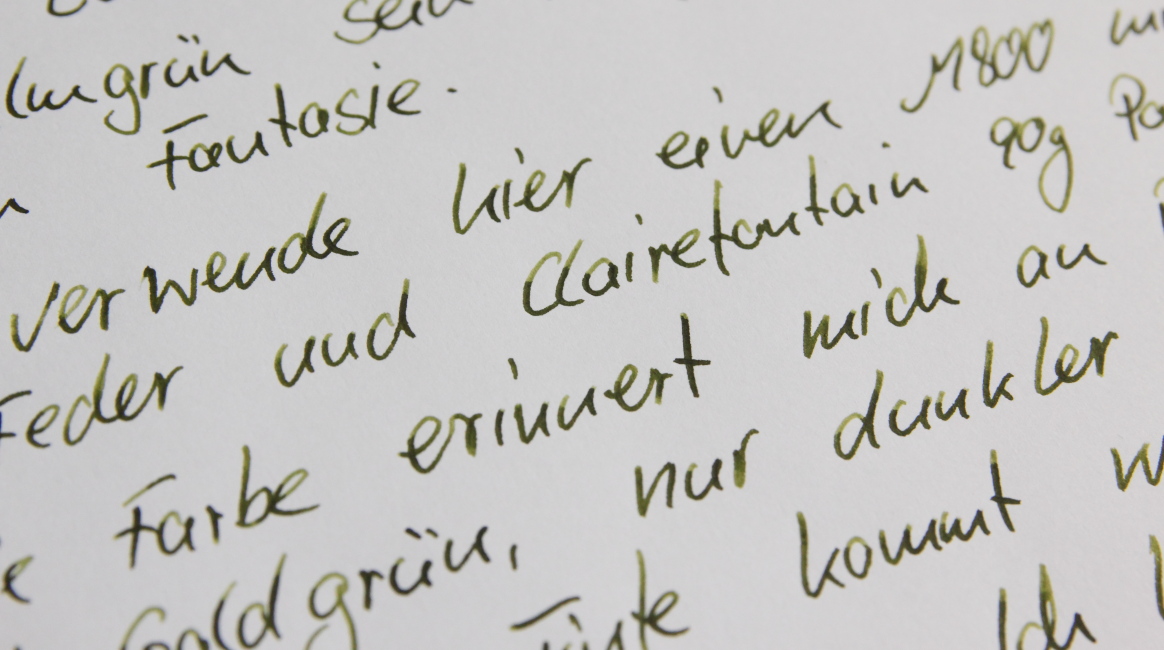 sein
Fantasie.
verwende hier einen M800
Feder und Clairefontain 90g
Farbe erinnert mich an
Goldgrün, nur dunkler
kommt
Ich